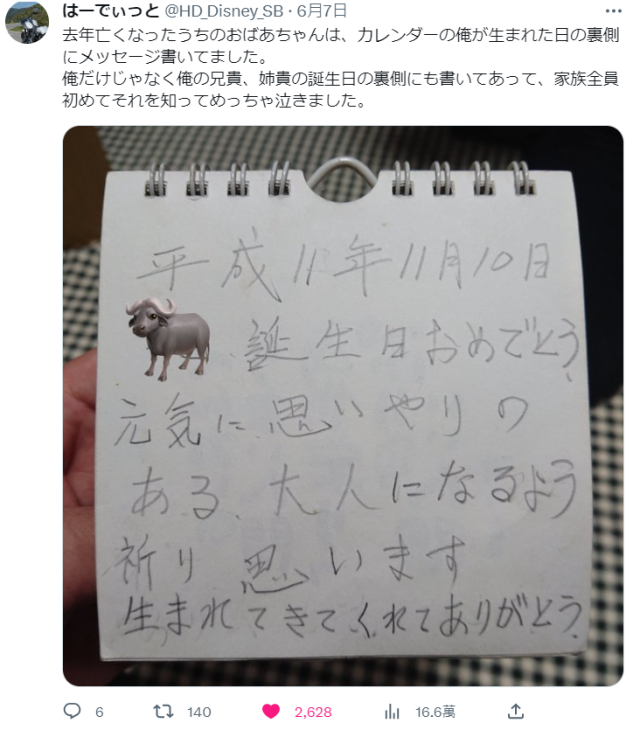 はーでぃっと @HD_Disney_SB · 6月7日
去年亡くなったうちのおばあちゃんは、カレンダーの俺が生まれた日の裏側
にメッセージ書いてました。
俺だけじゃなく俺の兄貴、姉貴の誕生日の裏側にも書いてあって、家族全員
初めてそれを知ってめっちゃ泣きました。
平成11年11月10日
誕生日おめでとう、
元気に思いやりの
ある、大人になるよう
祈り思います
生まれてきてくれてありがとう、
6 140 2,628 16.6萬